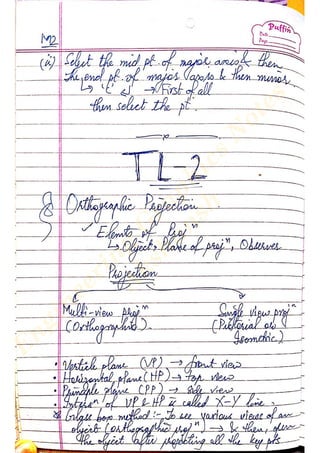 Puffin
Date
Page
M2
(ii) Select the mid pt. of major axis & then
the end pt. of major axis & then minor.
↳ 'L' ↲ → First of all
then select the pt.
p
TL-2
Orthographic Projection
✓ Elemts of Projⁿ
↳ Object, Plane of projⁿ, Observer
Projection
Multi-view projⁿ
(Orthographic).
Single view projⁿ
(Pictorial or
Isometric)
• Verticle plane (VP) → front view
• Horizontal plane (HP) → top view
• Principle plane (PP) → side view
• Intersⁿ of VP & HP is called X-Y line.
Glass box method :- To see various views of an
object (orthographic projⁿ) → & then, open
the object after projecting all the key pts